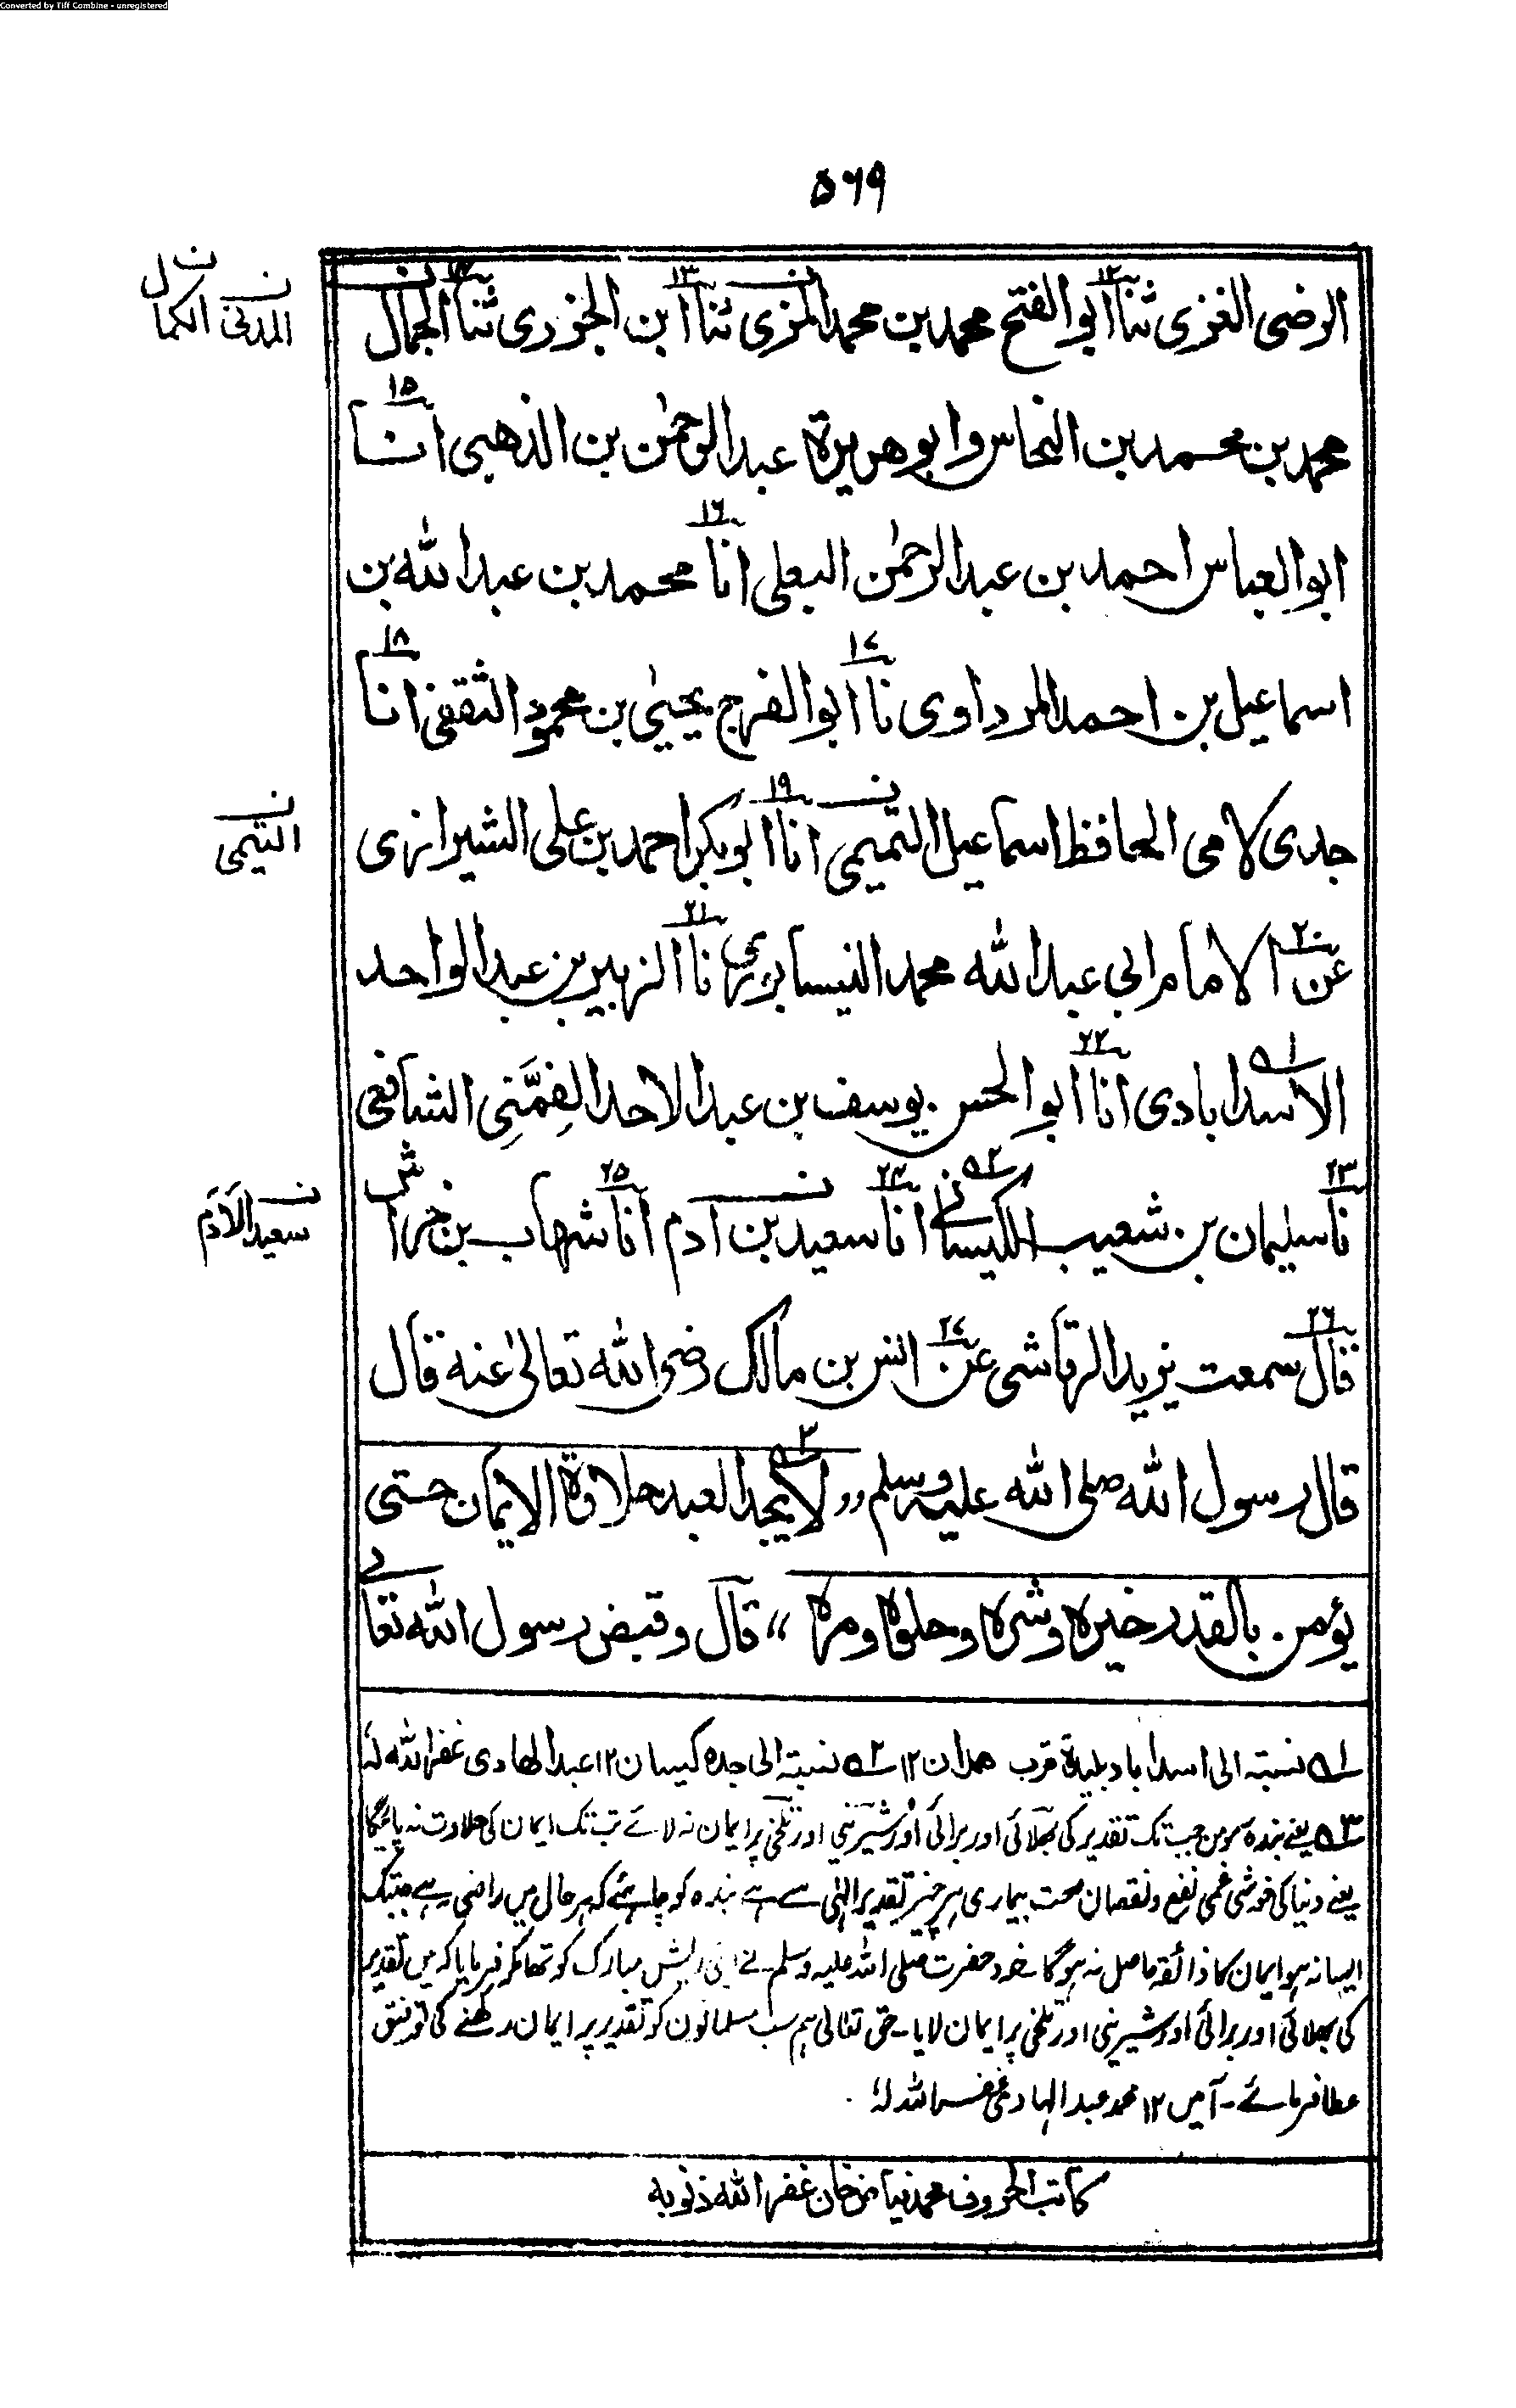 Converted by Tiff Combine - unregistered
۵۶۹
الرضی الغزی ثنا ۱۲ ابو الفتح محمد بن محمد المزی ثنا ۱۳ ابن الجزری ثنا ۱۴ الجمال
ن المدنی ن الکمال
محمد بن محمد بن النحاس وابو ھریرۃ عبد الرحمٰن بن الذھبی انا ۱۵
ابو العباس احمد بن عبد الرحمٰن البعلی انا ۱۶ محمد بن عبد اللہ بن
اسماعیل بن احمد المرداوی نا ۱۷ ابو الفرج یحییٰ بن محمود الثقفی انا ۱۸
جدی لامی الحافظ اسماعیل التمیمی انا ۱۹ ابو بکر احمد بن علی الشیرازی
ن التیمی
عن ۲۰ الامام ابی عبد اللہ محمد النیسابوری نا ۲۱ الزبیر بن عبد الواحد
الاسدابادی ۱؎ انا ۲۲ ابو الحسن یوسف بن عبد الاحد القِمَّنِی الشافعی
نا ۲۳ سلیمان بن شعیب الکیسانی ۲؎ انا ۲۴ سعید بن آدم انا ۲۵ شھاب بن خراش
ن سعید الآدم
قال ۲۶ سمعت یزید الرقاشی عن ۲۷ انس بن مالک رضی اللہ تعالیٰ عنہ قال
قال رسول اللہ صلی اللہ علیہ وسلم ”لا ۳؎ یجد العبد حلاوۃ الایمان حتی
یؤمن بالقدر خیرہ وشرہ وحلوہ ومرہ“ قال وقبض رسول اللہ تعالی
۱؎ نسبتہ الی اسداباد بلیدۃ قرب ھمدان ۱۲ ۲؎ نسبتہ الی جدہ کیسان ۱۲ عبد الھادی غفر اللہ لہٗ
۳؎ یعنے بندہ مومن جب تک تقدیر کی بھلائی اور برائی اور شیرینی اور تلخی پر ایمان نہ لائے تب تک ایمان کی حلاوت نہ پائیگا
یعنے دنیا کی خوشی غمی نفع ونقصان صحت بیماری ہر چیز تقدیر الٰہی سے ہے بندہ کو چاہئے کہ ہر حال میں راضی رہے جبتک
ایسا نہ ہو ایمان کا ذائقہ حاصل نہ ہوگا۔ خود حضرت صلی اللہ علیہ وسلم نے اپنی ریش مبارک کو تھامکر فرمایا کہ میں تقدیر
کی بھلائی اور برائی اور شیرینی اور تلخی پر ایمان لایا۔ حق تعالیٰ ہم سب مسلمانوں کو تقدیر پر ایمان رکھنے کی توفیق
عطا فرمائے۔ آمین ۱۲ محمد عبد الہادی غفر اللہ لہٗ
کاتب الحروف محمد نیاز خان غفر اللہ ذنوبہ